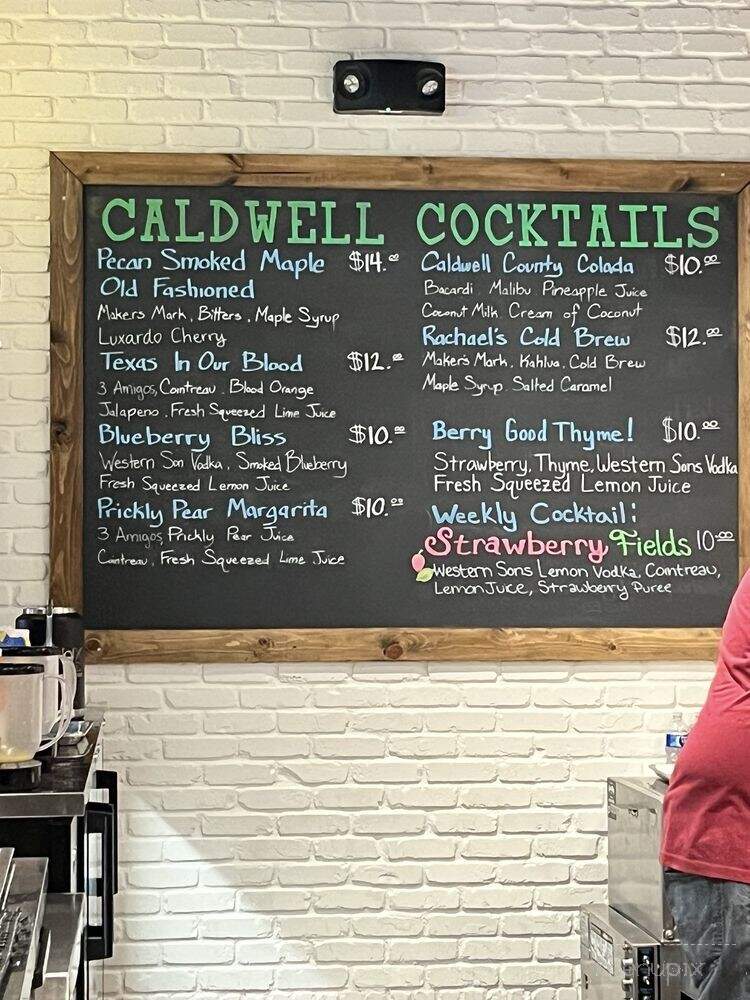 CALDWELL COCKTAILS
Pecan Smoked Maple $14.00
Old Fashioned
Makers Mark, Bitters, Maple Syrup
Luxardo Cherry
Texas In Our Blood $12.00
3 Amigos, Cointreau, Blood Orange
Jalapeno, Fresh Squeezed Lime Juice
Blueberry Bliss $10.00
Western Son Vodka, Smoked Blueberry
Fresh Squeezed Lemon Juice
Prickly Pear Margarita $10.00
3 Amigos, Prickly Pear Juice
Cointreau, Fresh Squeezed Lime Juice
Caldwell County Colada $10.00
Bacardi, Malibu, Pineapple Juice
Coconut Milk, Cream of Coconut
Rachael's Cold Brew $12.00
Maker's Mark, Kahlua, Cold Brew
Maple Syrup, Salted Caramel
Berry Good Thyme! $10.00
Strawberry, Thyme, Western Sons Vodka
Fresh Squeezed Lemon Juice
Weekly Cocktail:
Strawberry Fields 10.00
Western Sons Lemon Vodka, Cointreau,
Lemon Juice, Strawberry Puree